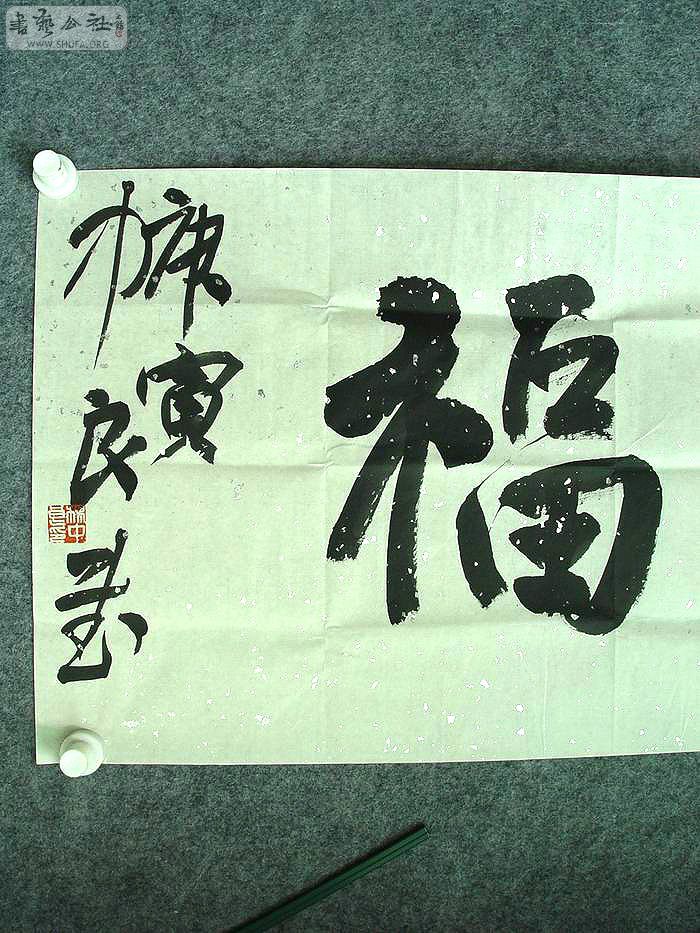 書藝公社
WWW.SHUFA.ORG
福
寅良書